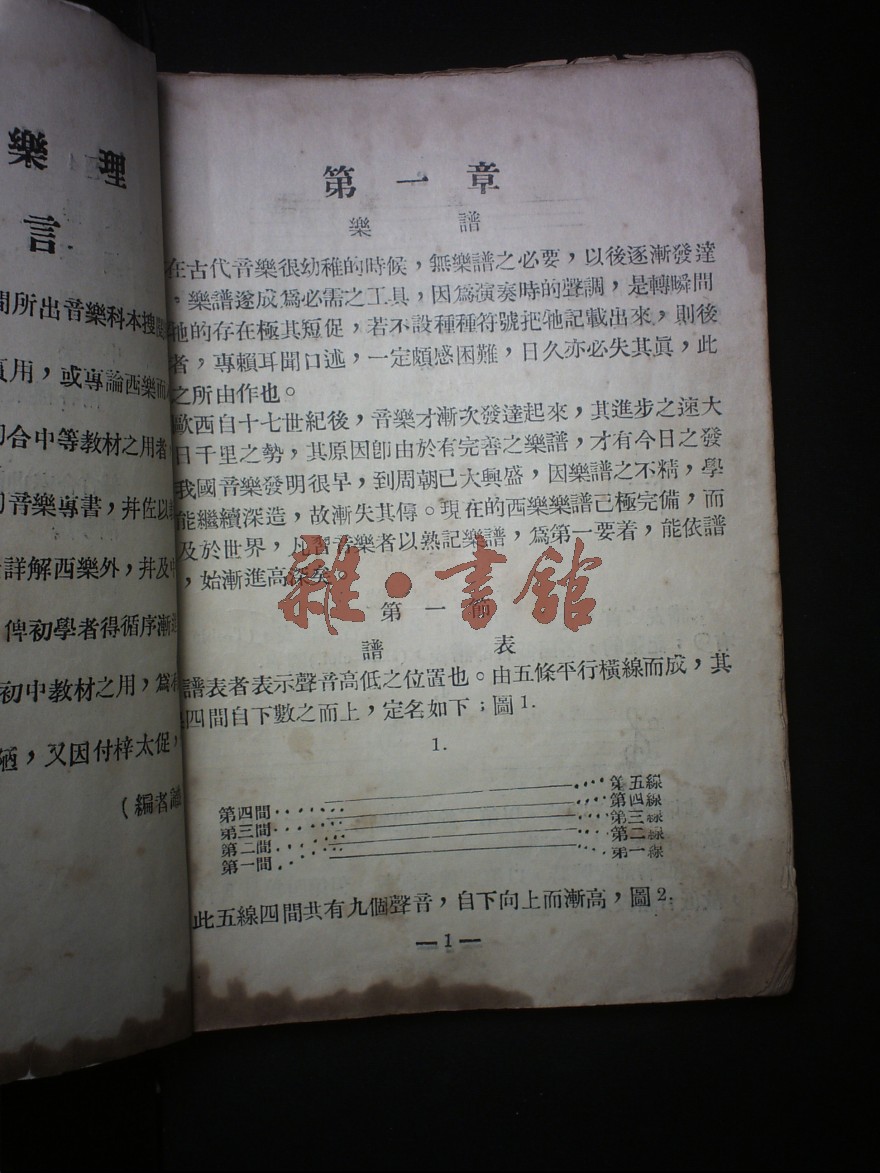 樂理
言
間所出音樂科本搜
用，或專論西樂而
合中等教材之用者
音樂專書，幷佐以
詳解西樂外，幷及中
俾初學者得循序漸
初中教材之用，爲
陋，又因付梓太促，
（編者識
第一章
樂譜
在古代音樂很幼稚的時候，無樂譜之必要，以後逐漸發達
。樂譜遂成爲必需之工具，因爲演奏時的聲調，是轉瞬間
牠的存在極其短促，若不設種種符號把牠記載出來，則後
者，專賴耳聞口述，一定頗感困難，日久亦必失其眞，此
之所由作也。
歐西自十七世紀後，音樂才漸次發達起來，其進步之速大
日千里之勢，其原因卽由於有完善之樂譜，才有今日之發
我國音樂發明很早，到周朝已大興盛，因樂譜之不精，學
能繼續深造，故漸失其傳。現在的西樂樂譜已極完備，而
及於世界，凡習音樂者以熟記樂譜，爲第一要着，能依譜
，始漸進高深矣。
雜·書館
第一節
譜表
譜表者表示聲音高低之位置也。由五條平行橫線而成，其
四間自下數之而上，定名如下；圖1.
1.
第四間 第五線
第三間 第四線
第二間 第三線
第一間 第二線
第一線
此五線四間共有九個聲音，自下向上而漸高，圖2.
—1—